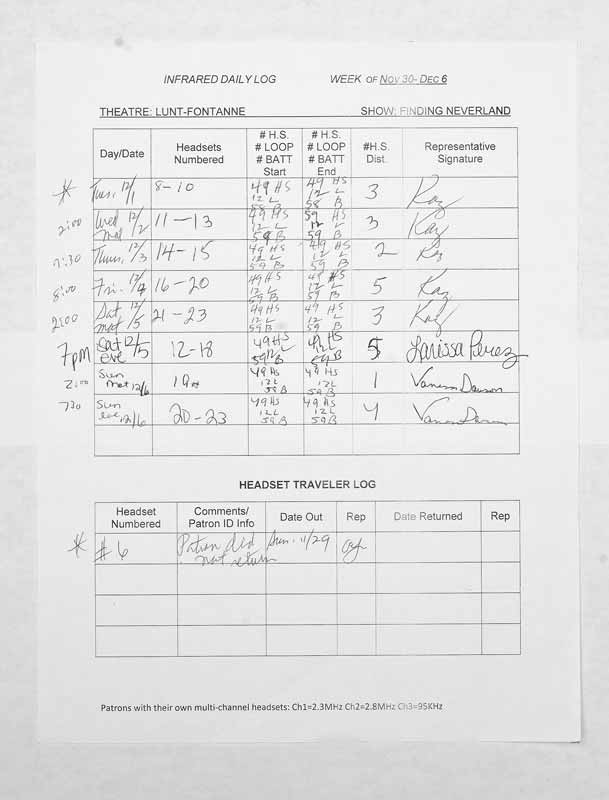 INFRARED DAILY LOG WEEK OF NOV 30- DEC 6
THEATRE: LUNT-FONTANNE SHOW: FINDING NEVERLAND
Day/Date Headsets Numbered # H.S. # LOOP # BATT Start # H.S. # LOOP # BATT End #H.S. Dist. Representative Signature
* Tues, 12/1 8-10 49 HS 12 L 58 B 49 HS 12 L 58 B 3 Kaz
2:00 Wed mat 12/2 11-13 49 HS 12 L 59 B 59 HS 12 L 59 B 3 Kaz
7:30 Thurs, 12/3 14-15 49 HS 12 L 59 B 49 HS 12 L 59 B 2 Kaz
8:00 Fri. 12/4 16-20 49 HS 12 L 59 B 49 HS 12 L 59 B 5 Kaz
2:00 Sat mat 12/5 21-23 49 HS 12 L 59 B 49 HS 12 L 59 B 3 Kaz
7pm Sat 12/5 eve 12-18 49 HS 12 L 59 B 49 HS 12 L 59 B 5 Larissa Perez
2:00 Sun mat 12/6 19 49 HS 12 L 59 B 49 HS 12 L 59 B 1 Vanessa Dawson
730 Sun eve 12/6 20-23 49 HS 12 L 59 B 49 HS 12 L 59 B 4
HEADSET TRAVELER LOG
Headset Numbered Comments/ Patron ID Info Date Out Rep Date Returned Rep
* # 6 Patron did not return Sun. 11/29
Patrons with their own multi-channel headsets: Ch1=2.3MHz Ch2=2.8MHz Ch3=95KHz